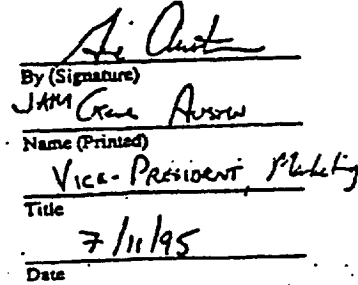 By (Signature)
Gene Austin
Name (Printed)
Vice-President, Marketing
Title
7/11/95
Date